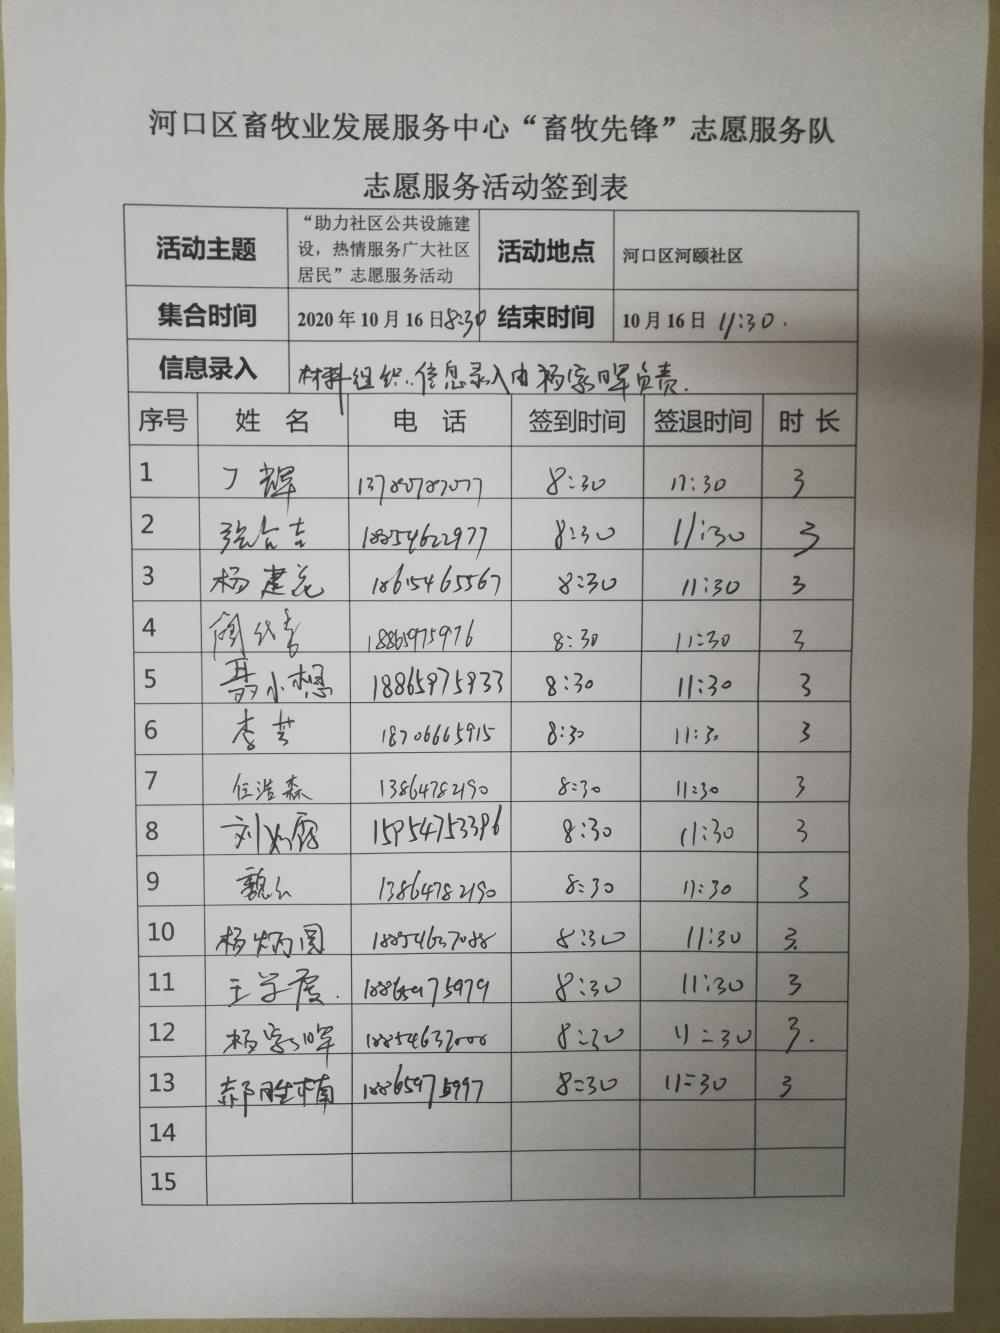 河口区畜牧业发展服务中心“畜牧先锋”志愿服务队
志愿服务活动签到表
活动主题 “助力社区公共设施建设，热情服务广大社区居民”志愿服务活动 活动地点 河口区河颐社区
集合时间 2020年10月16日8:30 结束时间 10月16日 11:30.
信息录入 材料组织、信息录入由杨家晖负责.
序号 姓 名 电 话 签到时间 签退时间 时 长
1 丁辉 13780787077 8:30 11:30 3
2 张合吉 18854622977 8:30 11:30 3
3 杨建花 18615465567 8:30 11:30 3
4 18865975976 8:30 11:30 3
5 聂小想 18865975933 8:30 11:30 3
6 李芸 18706665915 8:30 11:30 3
7 任浩森 13864782190 8:30 11:30 3
8 刘 15954753396 8:30 11:30 3
9 魏 13864782190 8:30 11:30 3
10 杨炳圆 18854637088 8:30 11:30 3.
11 王学虔. 18865975979 8:30 11:30 3
12 杨家晖 8:30 11:30 3.
13 郝胜楠 18865975997 8:30 11:30 3
14
15